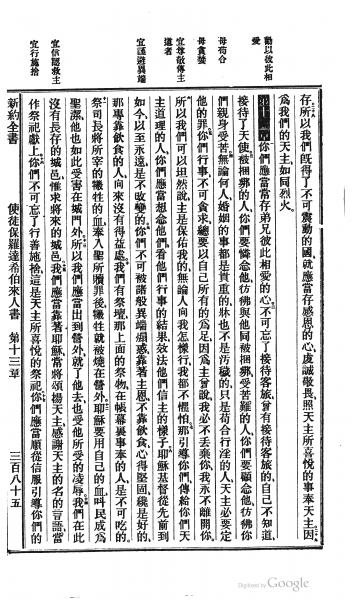 存所以我們旣得了不可震動的國就應當存感恩的心虔誠敬畏照天主所喜悅的事奉天主因
爲我們的天主如同烈火
勸以彼此相
愛
第十三章你們應當常存弟兄彼此相愛的心不可忘了接待客旅曾有接待客旅的自己不知道
接待了天使被捆綁的人你們要憐念他彷彿與他同被捆綁受苦難的人你們要顧念他彷彿你
毋苟合
們親身受苦無論何人婚姻的事都是貴重的牀也不是汚穢的只是苟合行淫的人天主必要定
毋貪婪
他的罪你們行事不可貪求總要以自己所有的爲足因爲主曾說我必不丟棄你我永不離開你
宜尊敬傳主
道者
所以我們可以坦然說主是保佑我的無論人向我怎樣行我都不懼怕那引導你們傳給你們天
主道理的人你們應當想念他們看他們行事的結果效法他們信主的樣子耶穌基督從先前到
宜謹避異端
如今以至永遠是不改變的你們不可被諸般異端搖惑靠著主恩不靠飲食心得堅固纔是好的
那專靠飲食的人向來沒有得益處我們有祭壇那上面的祭物在帳幕裏事奉的人是不可吃的
祭司長將所宰的犧牲的血奉入聖所贖罪後犧牲就被燒在營外耶穌要用自己的血叫民成爲
聖潔他也如此受害在城門外所以我們應當出到營外就了他去也受他所受的凌辱我們在此
宜信認救主
沒有長存的城邑惟求將來的城邑我們應當靠著耶穌常將頌揚天主感謝天主的名的言語當
宜行施捨
作祭祀獻上你們不可忘了行善施捨這是天主所喜悅的祭祀你們應當順從信服引導你們的
新約全書 使徒保羅達希伯來人書 第十三章 三百八十五
Digitized by Google